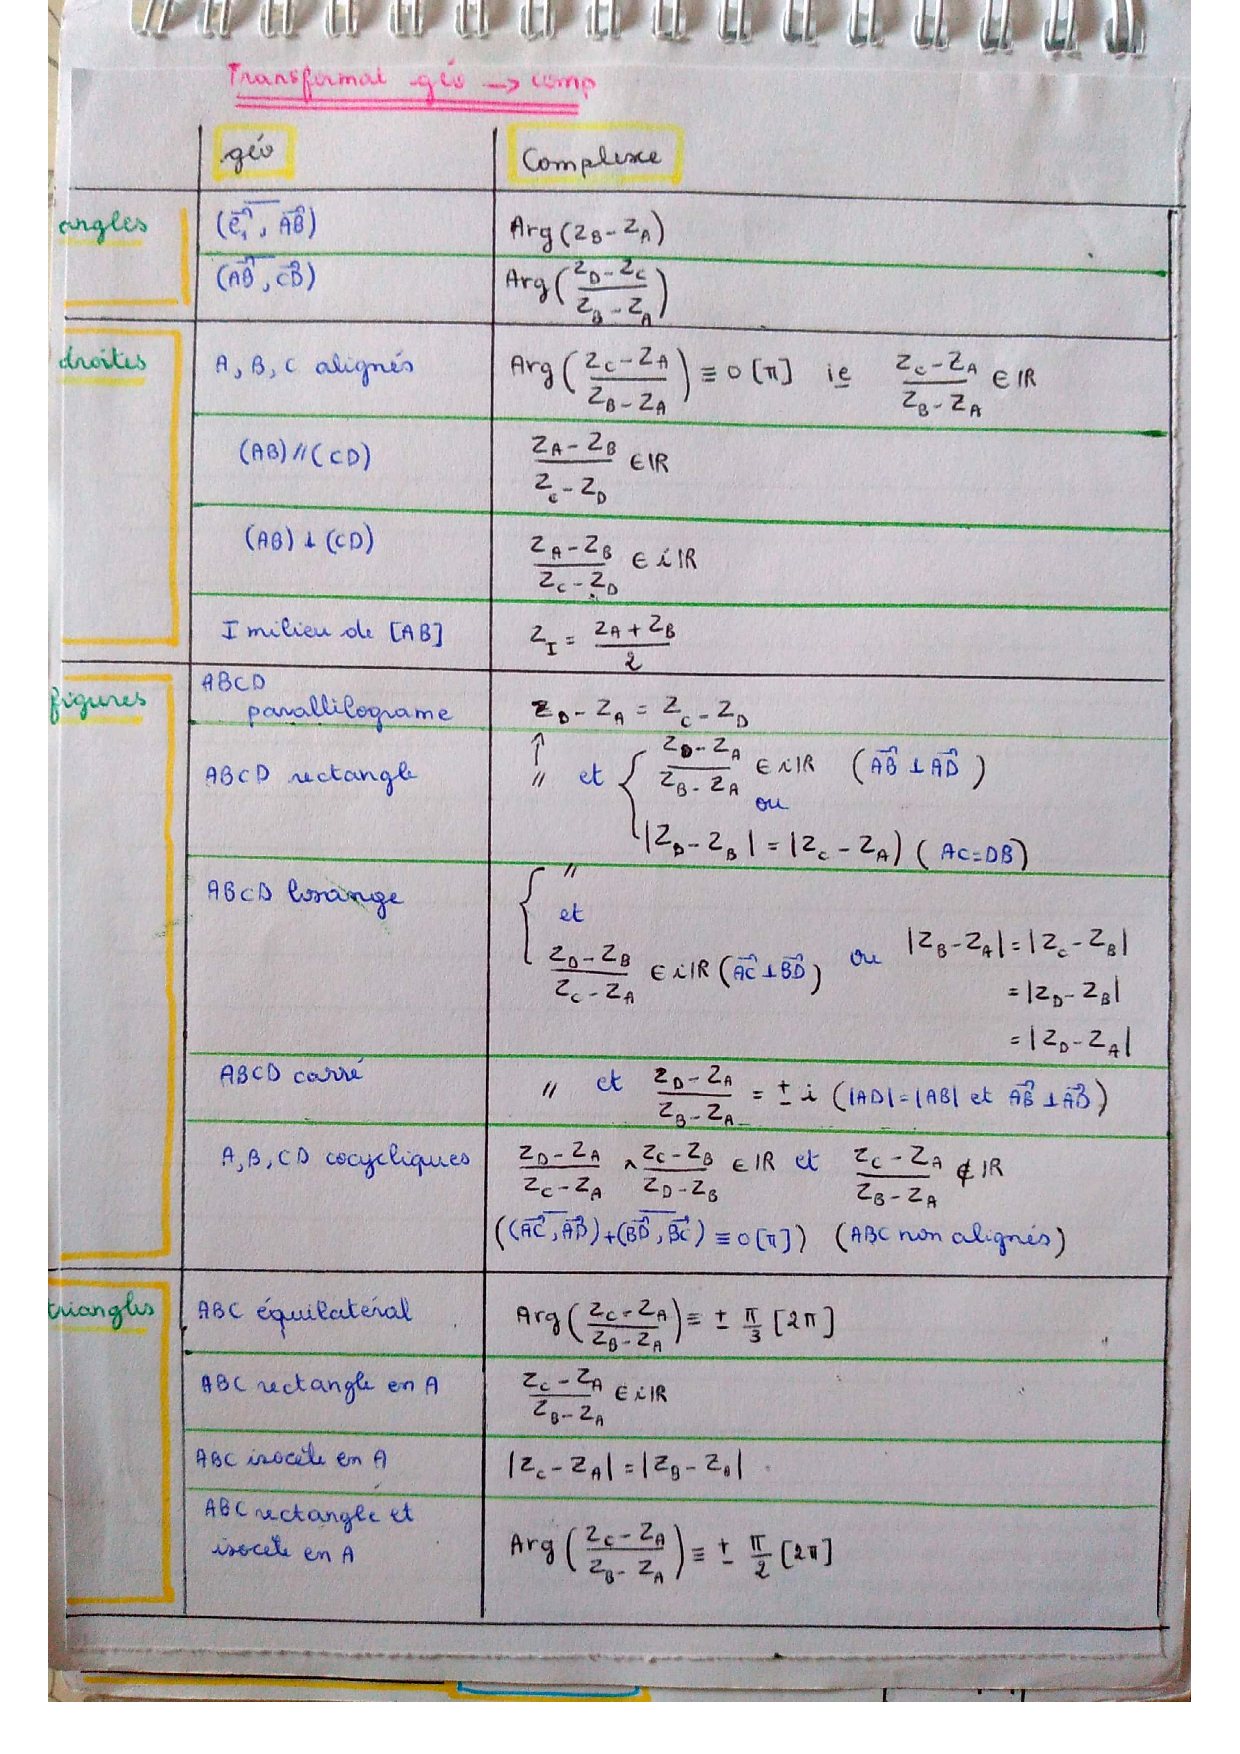 Transformat géo → comp
géo | Complexe
angles | (e₁, AB) | Arg(z_B - z_A)
(AB, CD) | Arg((z_D - z_C)/(z_B - z_A))
droites | A, B, C alignés | Arg((z_C - z_A)/(z_B - z_A)) ≡ 0 [π] ie (z_C - z_A)/(z_B - z_A) ∈ IR
(AB) // (CD) | (z_A - z_B)/(z_C - z_D) ∈ IR
(AB) ⊥ (CD) | (z_A - z_B)/(z_C - z_D) ∈ iIR
I milieu de [AB] | z_I = (z_A + z_B)/2
figures | ABCD
parallilograme | z_D - z_A = z_C - z_D
ABCD rectangle | ↑ // et { (z_D - z_A)/(z_B - z_A) ∈ iIR (AB ⊥ AD)
ou
|z_D - z_B| = |z_C - z_A) (AC = DB)
ABCD losange | { //
et
(z_D - z_B)/(z_C - z_A) ∈ iIR (AC ⊥ BD) ou |z_B - z_A| = |z_C - z_B|
= |z_D - z_B|
= |z_D - z_A|
ABCD carré | // et (z_D - z_A)/(z_B - z_A) = ± i (|AD| = |AB| et AB ⊥ AD)
A, B, CD cocycliques | (z_D - z_A)/(z_C - z_A) × (z_C - z_B)/(z_D - z_B) ∈ IR et (z_C - z_A)/(z_B - z_A) ∉ IR
((AC, AD) + (BD, BC) ≡ 0 [π]) (ABC non alignés)
triangles | ABC équilatéral | Arg((z_C - z_A)/(z_B - z_A)) ≡ ± π/3 [2π]
ABC rectangle en A | (z_C - z_A)/(z_B - z_A) ∈ iIR
ABC isocèle en A | |z_C - z_A| = |z_B - z_A|
ABC rectangle et
isocèle en A | Arg((z_C - z_A)/(z_B - z_A)) ≡ ± π/2 [2π]